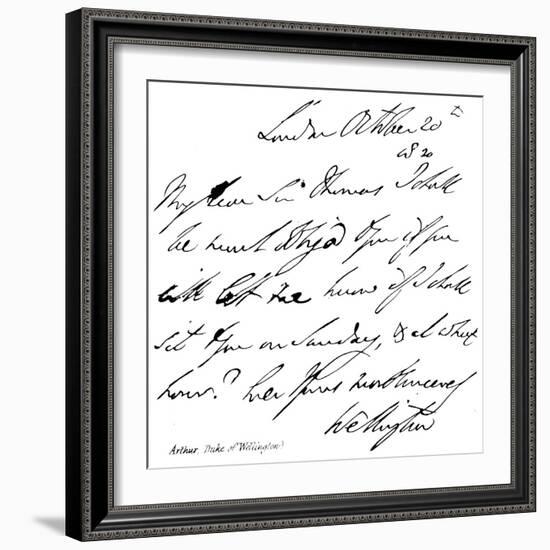 London October 20th
1820
My dear Sir Thomas I shall
be much oblig'd to you if you
will let me know if I shall
sit to you on Sunday, & at what
hour? Ever Yours most sincerely
Wellington
Arthur, Duke of Wellington)